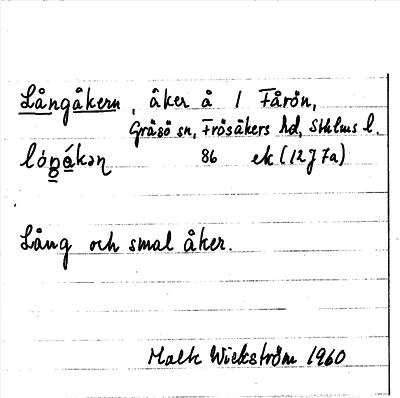 Långåkern, åker å 1 Fårön,
Gräsö sn, Frösåkers hd, Sthlms l.
lóŋákəɳ 86 ek (12J7a)
Lång och smal åker.
Wickström 1960